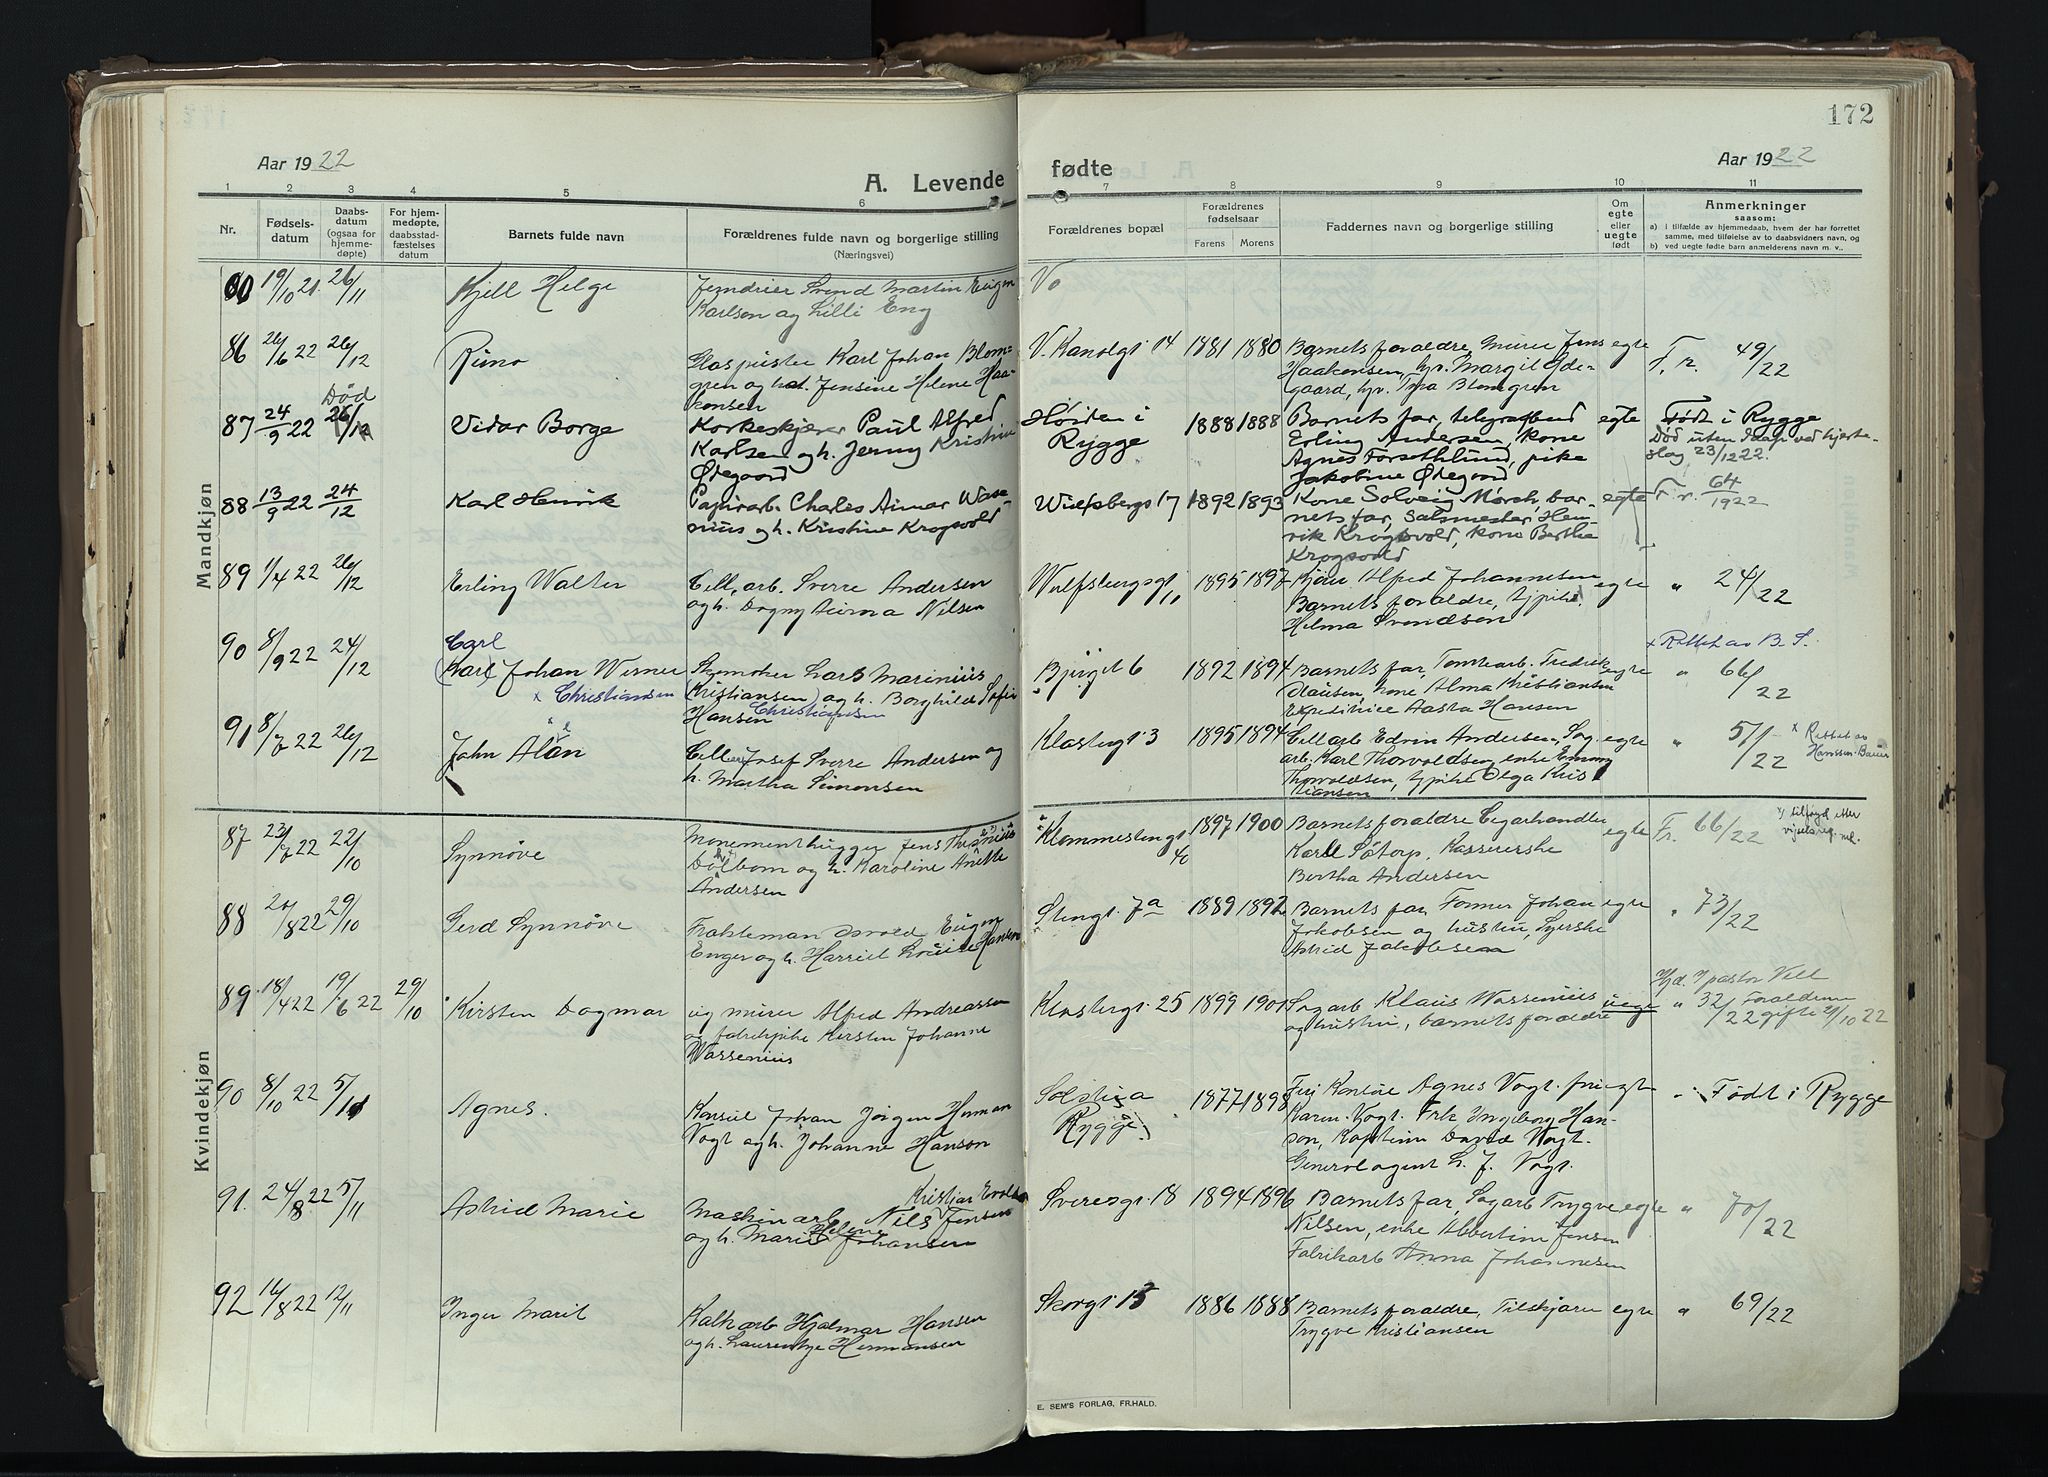 172
Aar 1922
A. Levende
fødte
Aar 1922
1 2 3 4 5 6
7 8 9 10 11
Nr.
Fødsels-
datum
Daabs-
datum
(ogsaa for
hjemme-
døpte)
For hjem-
medøpte,
daabsstad-
fæstelses
datum
Barnets fulde navn
Forældrenes fulde navn og borgerlige stilling
(Næringsvei)
Forældrenes bopæl
Forældrenes
fødselsaar
Farens Morens
Faddernes navn og borgerlige stilling
Om
egte
eller
uegte
født
Anmerkninger
saasom:
a) i tilfælde av hjemmedaab, hvem der har forrettet
samme, med tilføielse av to daabsvidners navn, og
b) ved uegte fødte barn anmelderens navn m. v..
Mandkjøn
19/10 21. 26/11 Kjell Helge
Svend Martin Eugen
Karlson og Lilli Eng
Vo
86 26/6 22 26/12 Runo
Glaspuster Karl Johan Blom-
gren og h. Jensine Helene Haa-
konsen
V. Kanalgt 14 1881 1880
Barnets forældre, Murer Jens
Haakonsen, hr. Margit Øde-
gaard, Blomgren
egte F. r. 49/22
Død
87 24/9 22 26/12 Vidar Borge
Korkeskjærer Paul Alfred
Karlsen og h. Jenny Kristine
Ødegaard
Høiden i
Rygge
1888 1888
Barnets far, telegrafbud
Erling Andersen, kone
Agnes Forsethlund, pike
Jakobine Ødegaard
egte Født i Rygge
Død uten daap ved hjerte-
slag 23/12 22.
88 13/9 22 24/12 Karl Henrik
Papirarb. Charles Aimar Wase-
nius og h. Kristine Krogsvold
Wulfsbergs 17 1892 1893
Kone Solveig Mørch, bar-
nets far, Salsmester Hen-
rik Krogsvold, kone Berthe
Krogsvold
egte F. r. 64/1922
89 1/4 22 26/12 Erling Walter
Cell. arb. Sverre Andersen
og h. Dagny Nilsen
Wulfsbergsgt 11 1895 1897
Alfred Johannesen
Barnets forældre, tj.pike
Helma Svendsen
egte " 24/22
90 8/9 22 24/12 Carl
(Karl) Johan Werner
x Christiansen
Skomaker Lars Marinius
(Kristiansen) og h. Borghild Sofie
Hansen Christiansen
Bjerget 6 1892 1894
Barnets far, Tomtearb. Fredrik
Clausen, kone Alma Kristiansen
Expeditrice Aasta Hansen
egte x Rettet av B. S.
" 66/22
91 8/7 22 26/12 John Alan
Josef Sverre Andersen og
h. Martha Simonsen
Klostergt. 3 1895 1894
Cellarb Edvin Andersen, Sag-
arb. Karl Thorvaldsen, enke Emmy
Thorvaldsen, tj.pike Olga Kris-
tiansen
egte " 57/22 x Rettet av
Kvindekjøn
87 23/7 22 22/10 Synnøve
Monementhugger Jens
Dalbom og h. Karoline Anette
Andersen
40 1897 1900
Barnets forældre Cigarhandler
Karl Såtorp, Kassererske
Bertha Andersen
egte Fr. 66/22 x) tilføyd etter
88 8 22 29/10 Gerd Synnøve
Eugen
Enger og h. Harriet Louise Hansen
Stengt. 7a 1889 1892
Barnets far, Former Johan
Jakobsen og hustru, Syerske
Astrid Jakobsen
egte " 73/22
89 18/4 22 19/6 22 29/10 Kirsten Dagmar
ug murer Alfred Andreassen
og fabrikpike Kirsten Johanne
Wassenius
Klostergt. 25 1899 1901
Sagarb Klaus Wassenius
og hustru, barnets forældre
uegte Hjd. v/ pastor Vell
" 32/22 Forældrene
gifte 29/10 22
90 8/10 22 5/11 Agnes.
Konsul Johan Jørgen Herman
Vogt og h. Johanne Hanson
Rygge 1877 1898
Agnes Vogt. frk
Karen Vogt. Frk Ingeborg Han-
son, Kaptein David Vogt.
Generalagent L. J. Vogt.
egte " Født i Rygge
91. 24/8 22 5/11 Astrid Marie
Kristian Evald
Maskinarb Nils Jensen
og h. Marie Helene Johansen
Sveresgt. 18 1894 1896
Barnets far, Sagarb Trygve
Nilsen, enke Albertine Jensen
Fabrikarb Anna Johannesen
egte " 70/22
92 16/8 22 12/11 Inger Marit
Kalkarb Hjalmar Hansen
og h. Hermansen
Skogt. 15 1886 1888
Barnets forældre, Tilskjærer
Trygve Kristiansen
egte " 69/22
E. SEM'S FORLAG, FR.HALD.